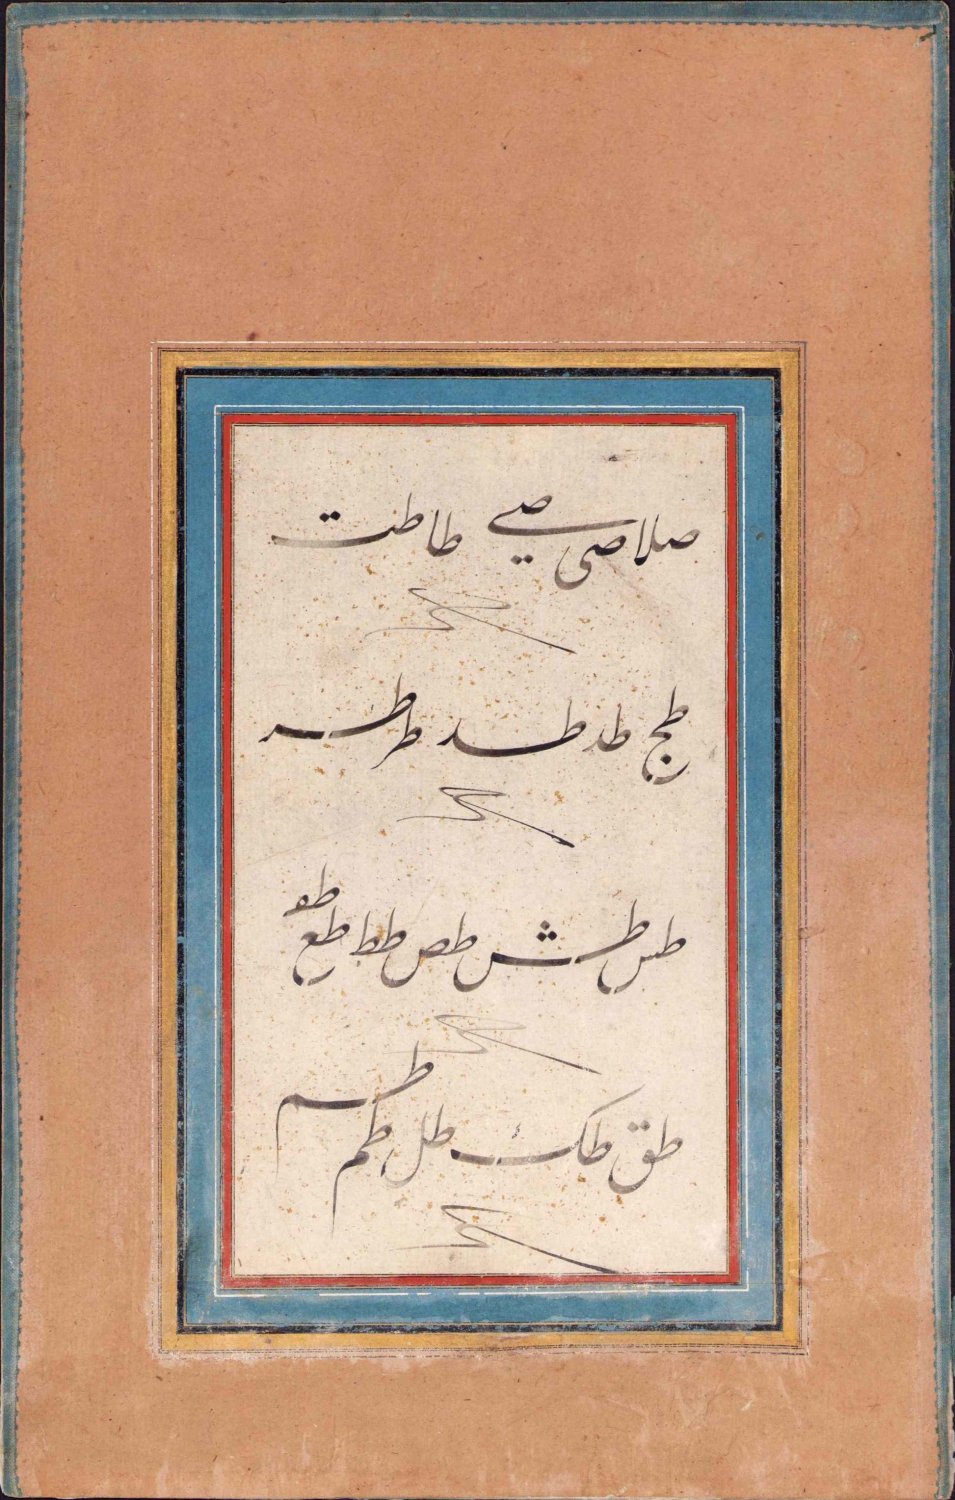 صلا صی صے طا طت
طج طد طد طر طر
طس طش طص طط طع طو
طق طک طل طم طم